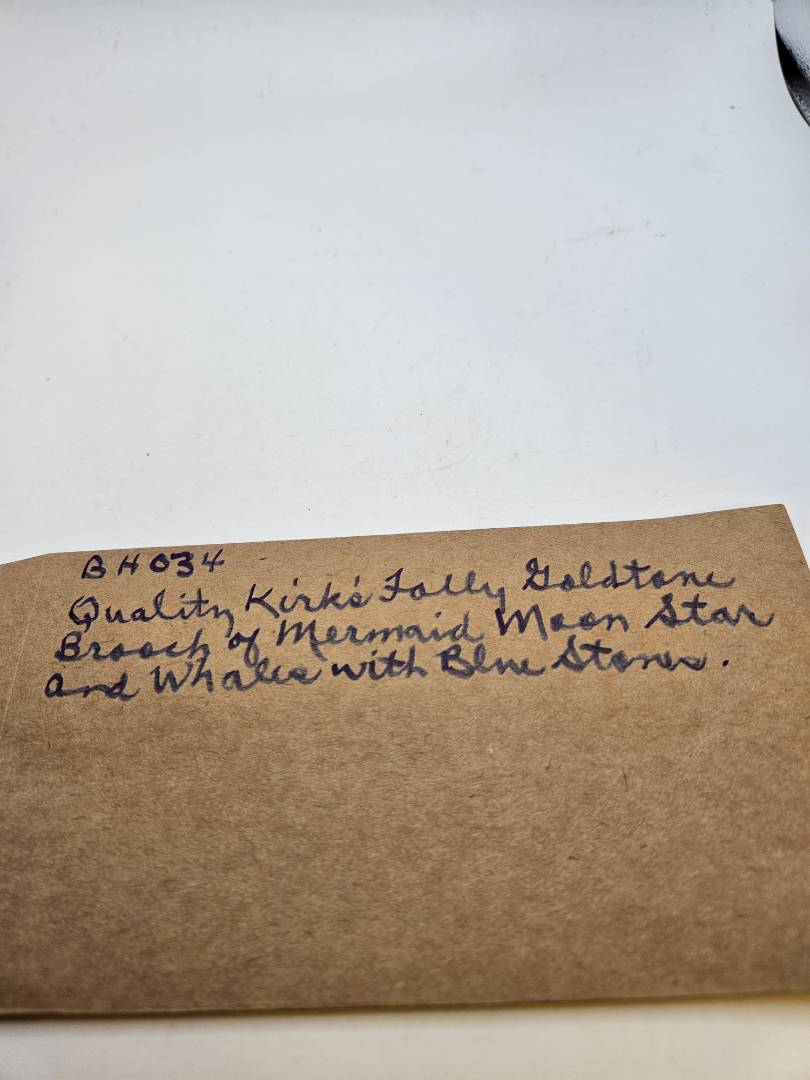 BH034
Quality Kirk's Folly Goldtone
Brooch of Mermaid Moon Star
and Whales with Blue Stones.